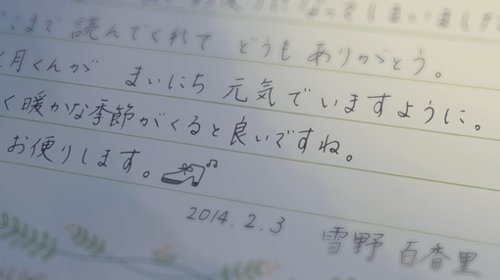 なってしまいました
まで 読んでくれて どうも ありがとう。
月くんが まいにち 元気でいますように。
く暖かな季節がくると良いですね。
お便りします。
2014.2.3
雪野 百香里